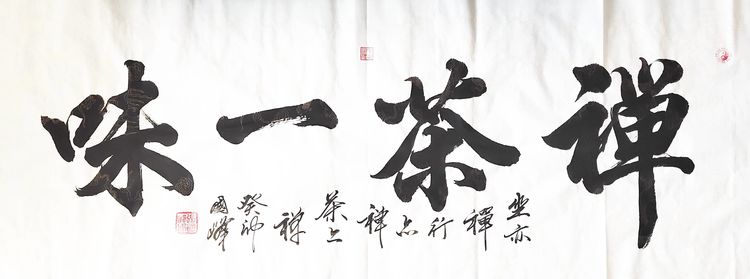 禪茶一味
坐亦
禪
行
亦
禅
茶
禅
癸卯
國峰